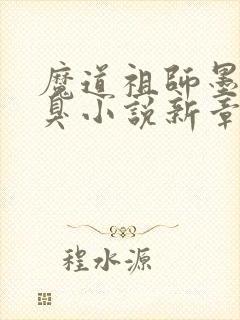 魔道祖師墨
臭小説新章
程水源